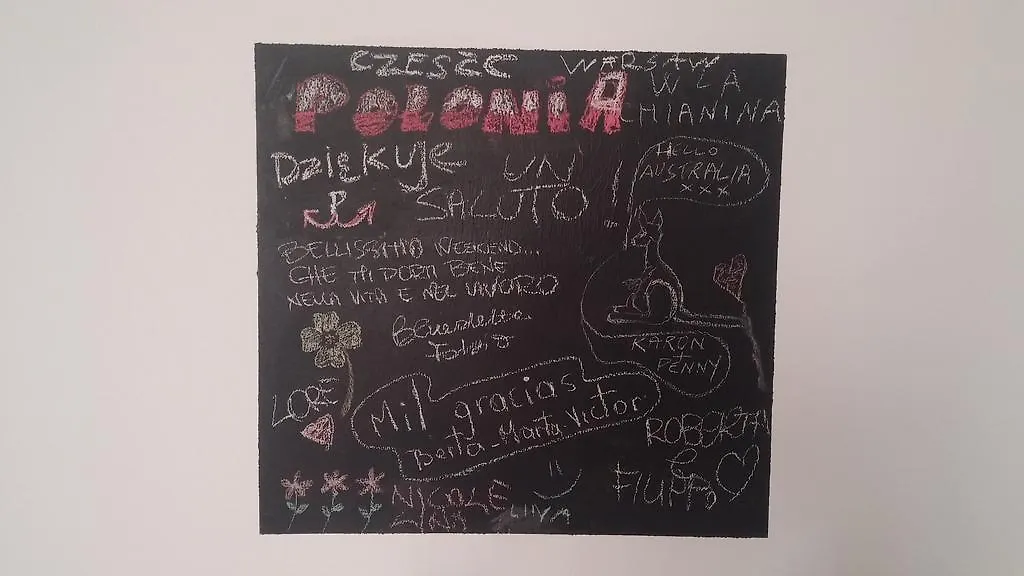 CZESEC WARSAW
POLONIA
W LA
CHIANINA
DZIĘKUJE
UN
SALUTO !!
HELLO
AUSTRALIA
xxx
P
BELLISSIMO WEEKEND...
CHE TI PORTI BENE
NELLA VITA E NEL LAVORO
Benedetta
KARON
+
PENNY
LORE
Mil gracias
Berta-Marta-Victor
ROBERTA
e
FILIPPO
NICOLE
LIVA